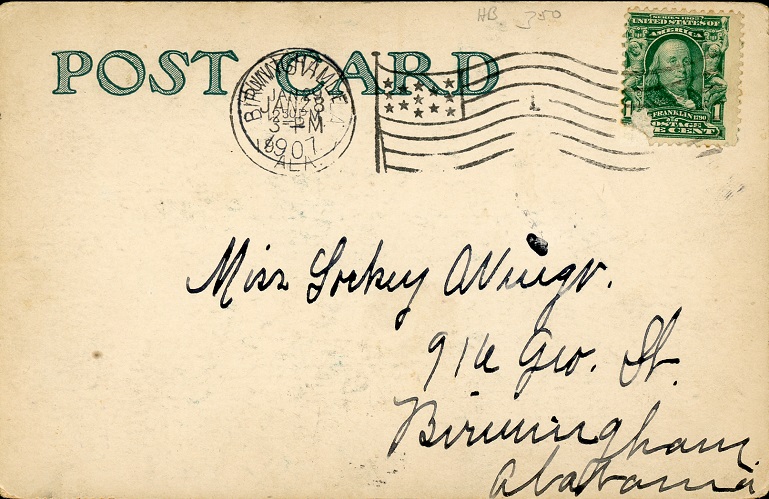 HB 350
POST CARD
BIRMINGHAM
JAN 28
3 - PM
1907
ALA.
SERIES 1902
UNITED STATES OF
AMERICA
1 FRANKLIN 1790 1
POSTAGE
ONE CENT
Miss
916 Geo. St.
Birmingham,
Alabama